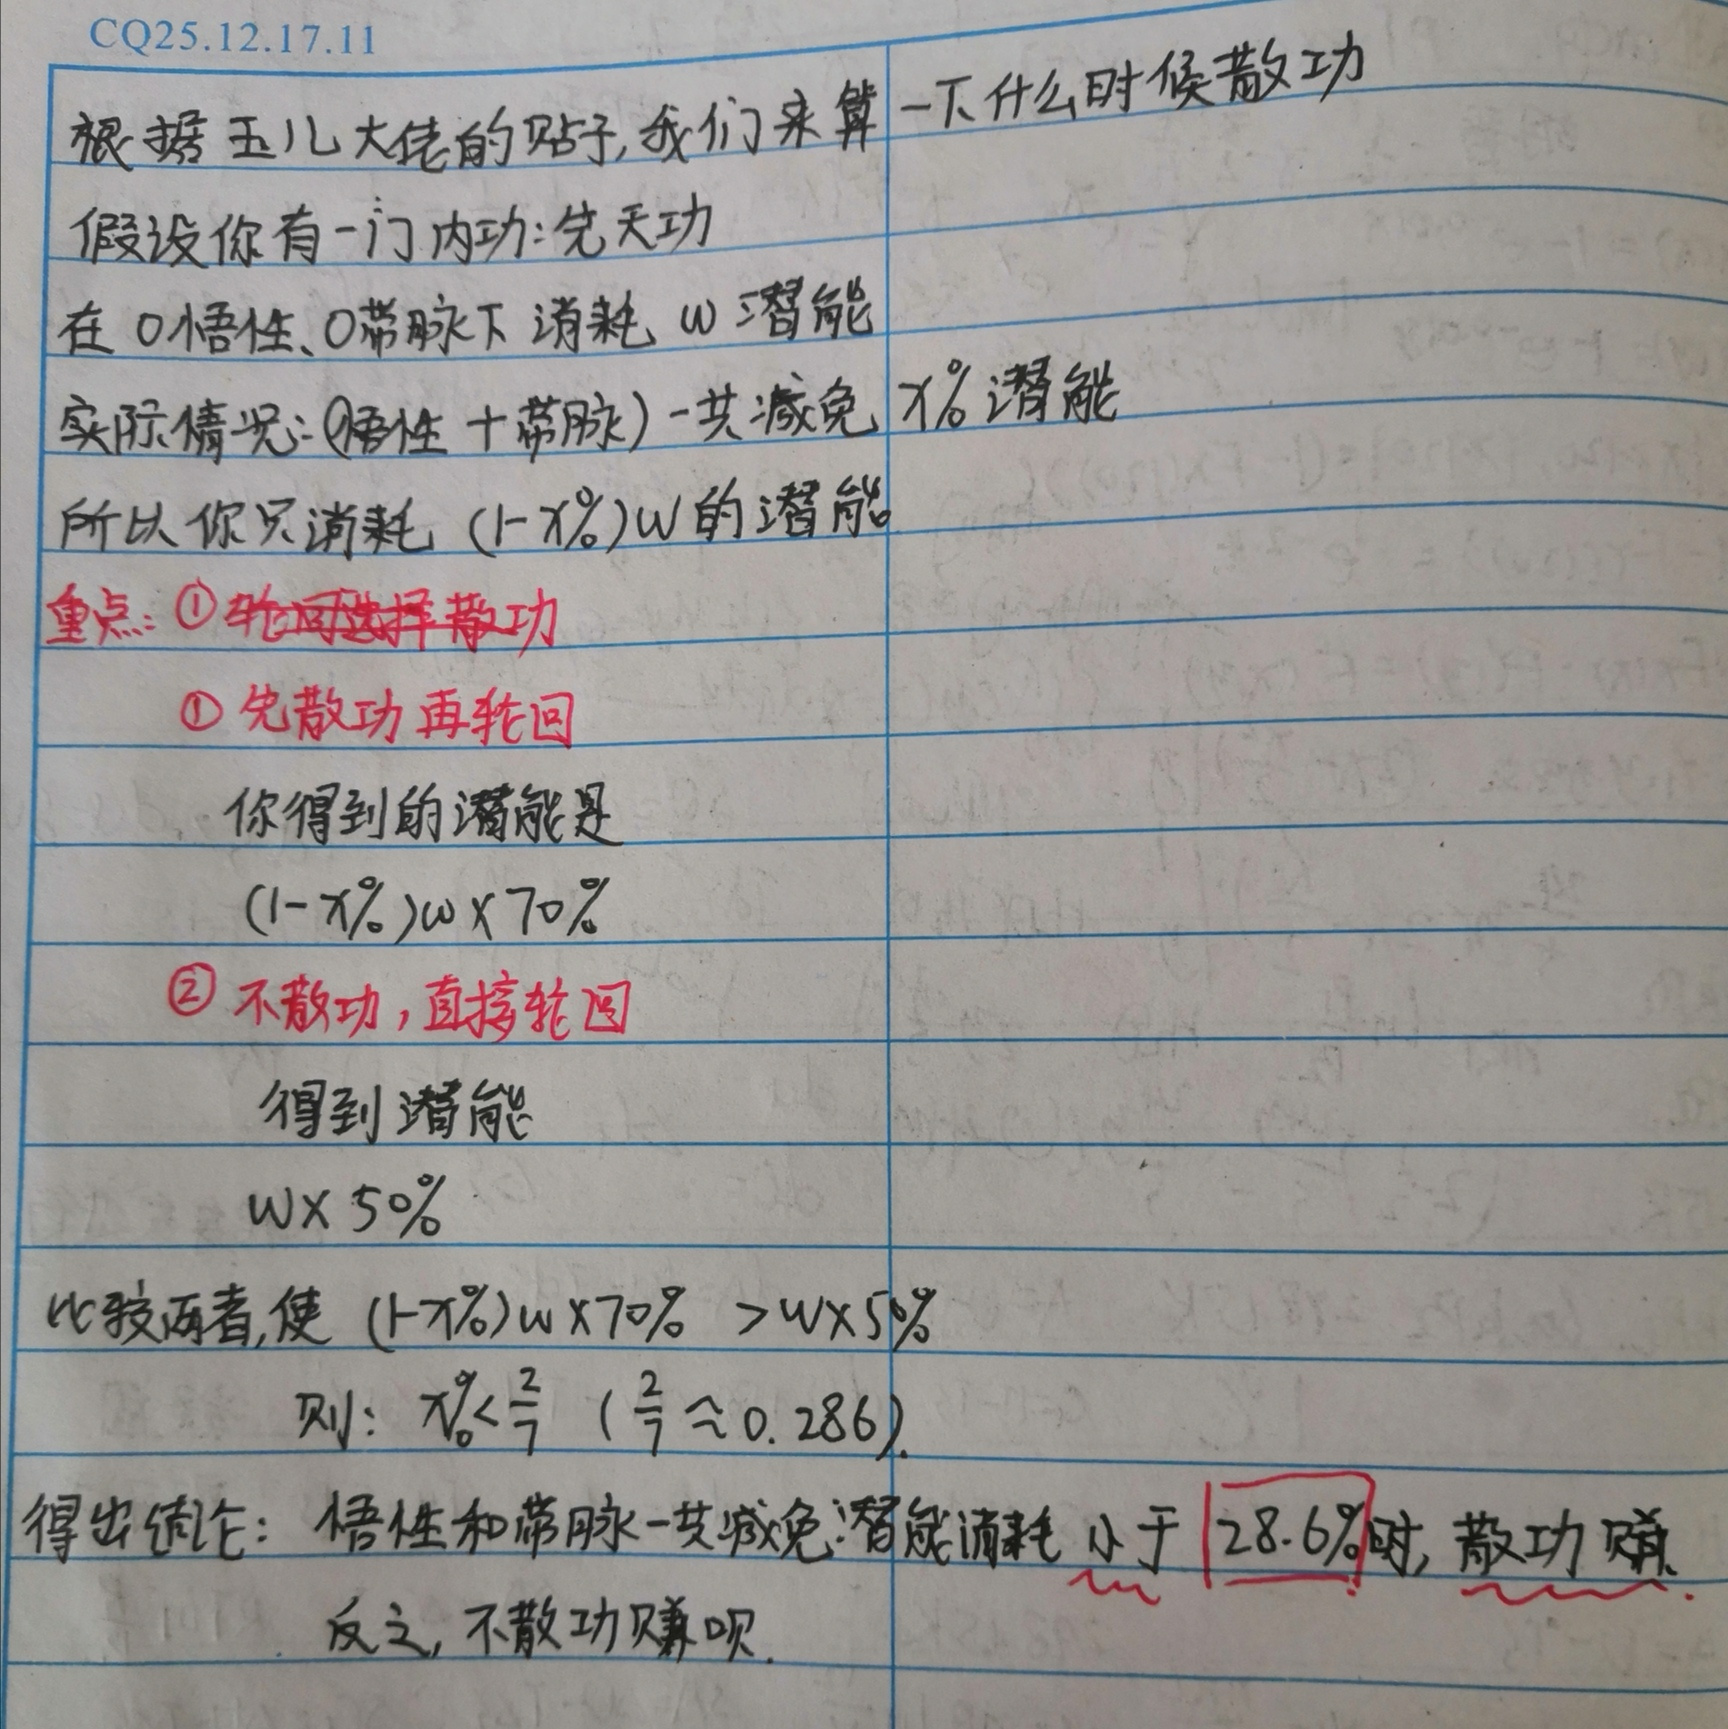 CQ25.12.17.11
根据玉儿大佬的贴子,我们来算一下什么时候散功
假设你有一门内功:先天功
在0悟性、0带脉下消耗w潜能
实际情况:(悟性+带脉)一共减免x%潜能
所以你只消耗(1-x%)w的潜能
重点:①轮回选择散功
①先散功再轮回
你得到的潜能是
(1-x%)w×70%
②不散功,直接轮回
得到潜能
w×50%
比较两者,使(1-x%)w×70%>w×50%
则:x%<2/7 (2/7≈0.286).
得出结论:悟性和带脉一共减免潜能消耗小于28.6%时,散功赚.
反之,不散功赚呗.